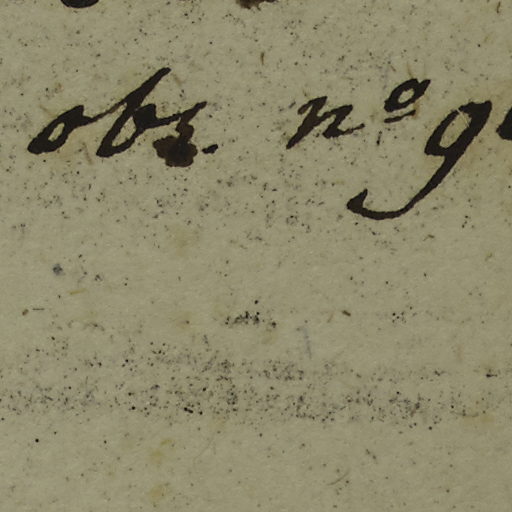 obs. nº 9